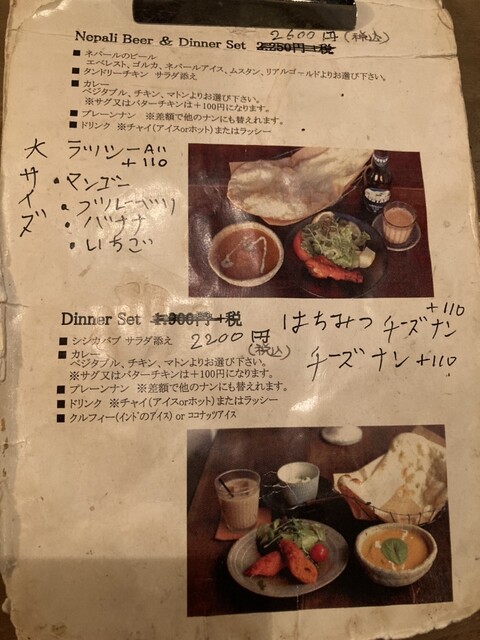 2600円(税込)
Nepali Beer & Dinner Set 2.250円+税
■ ネパールのビール
エベレスト、ゴルカ、ネパールアイス、ムスタン、リアルゴールドよりお選び下さい。
■ タンドリーチキン サラダ添え
■ カレー
ベジタブル、チキン、マトンよりお選び下さい。
※サグ又はバターチキンは+100円になります。
■ プレーンナン ※差額で他のナンにも替えれます。
■ ドリンク ※チャイ(アイスorホット)またはラッシー
大サイズ
ラッシー
+110
・マンゴー
・ブルーベリ
・バナナ
・いちご
Dinner Set 1.900円+税
2200円
(税込)
はちみつ チーズナン +110
チーズナン +110
■ シシカバブ サラダ添え
■ カレー
ベジタブル、チキン、マトンよりお選び下さい。
※サグ又はバターチキンは+100円になります。
■ プレーンナン ※差額で他のナンにも替えれます。
■ ドリンク ※チャイ(アイスorホット)またはラッシー
■ クルフィー(インドのアイス) or ココナッツアイス